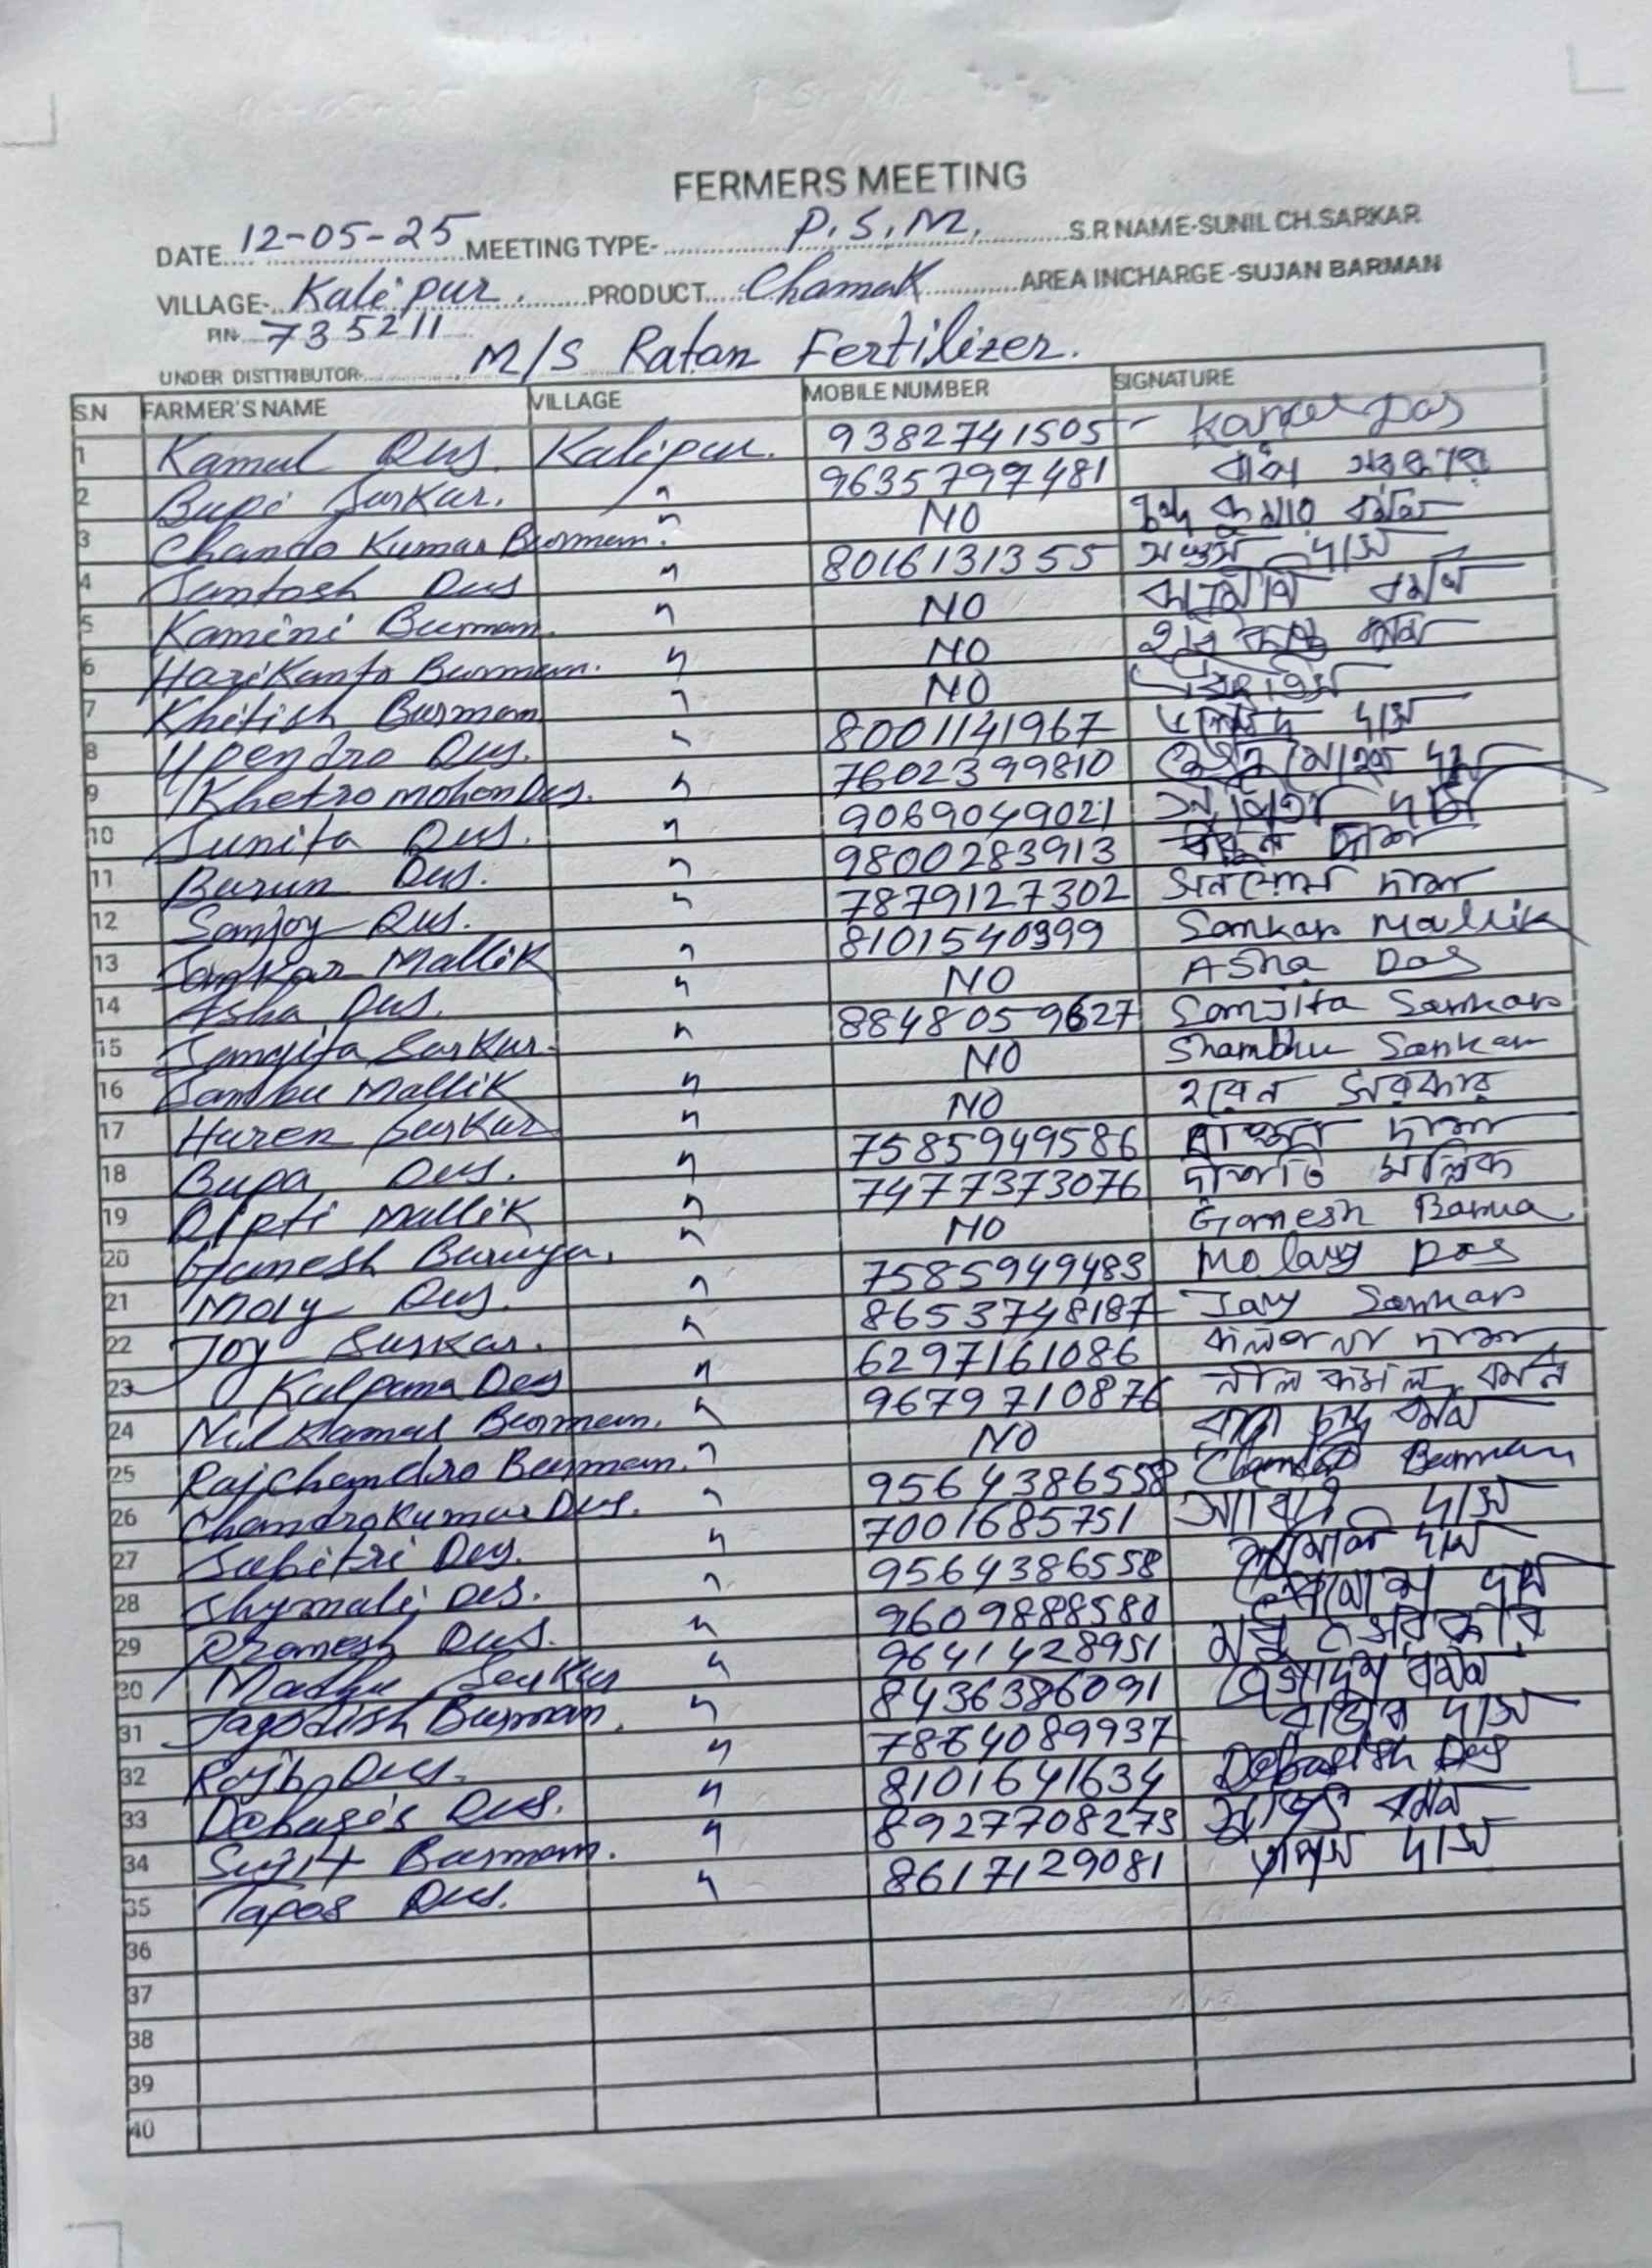 FERMERS MEETING
DATE.... 12-05-25 MEETING TYPE- P.S.M. S.R NAME-SUNIL CH.SARKAR
VILLAGE- Kalipur. PRODUCT..... Chamak AREA INCHARGE-SUJAN BARMAN
PIN- 735211
UNDER DISTTRIBUTOR- M/S Ratan Fertilizer.
S.N FARMER'S NAME VILLAGE MOBILE NUMBER SIGNATURE
1 Kamal Das. Kalipur. 9382741505 Das
2 Bapi Sarkar. " 9635797481 বাপি সরকার
3 Chando Kumar Barman. " NO কুমার বর্মন
4 Santosh Das " 8016131355 দাস
5 Kamini Barman. " NO বর্মন
6 HariKanta Barman. " NO বর্মন
7 Khitish Barman " NO
8 Upendro Das. " 8001141967 দাস
9 Khetro mohon Das. " 7602399810 মোহন দাস
10 Sunita Das. " 9069049021
11 Barun Das. " 9800283913 দাস
12 Sanjoy Das. " 7879127302 দাস
13 Sankar Mallik " 8101540399 Sankar Mallik
14 Asha Das. " NO Asha Das
15 Sangita Sarkar. " 8848059627 Sanjita Sarkar
16 Sambu Mallik " NO Shambhu Sarkar
17 Haren Sarkar " NO হরেন সরকার
18 Bapa Das. " 7585949586 দাস
19 Dipti Mallik " 7477373076 মল্লিক
20 Ganesh Baruya. " NO Ganesh Barua
21 Moly Das. " 7585949483 Das
22 Joy Sarkar. " 8653748187 Joy Sarkar
23 Kalpana Das " 6297161086 দাস
24 Nil Kamal Barman. " 9679710876 নীল কমল বর্মন
25 Rajchandro Barman. " NO চন্দ্র বর্মন
26 Chandrokumar Das. " 9564386558 Barman
27 Sabitri Das. " 7001685751 দাস
28 Shymali Das. " 9564386558 দাস
29 Pramesh Das. " 9609888580 দাস
30 Madhu Sarkar " 9641428951 সরকার
31 Jagodish Barman. " 8436386091 বর্মন
32 Rajib Das. " 7864089937 রাজিব দাস
33 Debasis Das. " 8101641634 Debasish Das
34 Sujit Barman. " 8927708273 বর্মন
35 Tapas Das. " 8617129081 তাপস দাস
36
37
38
39
40